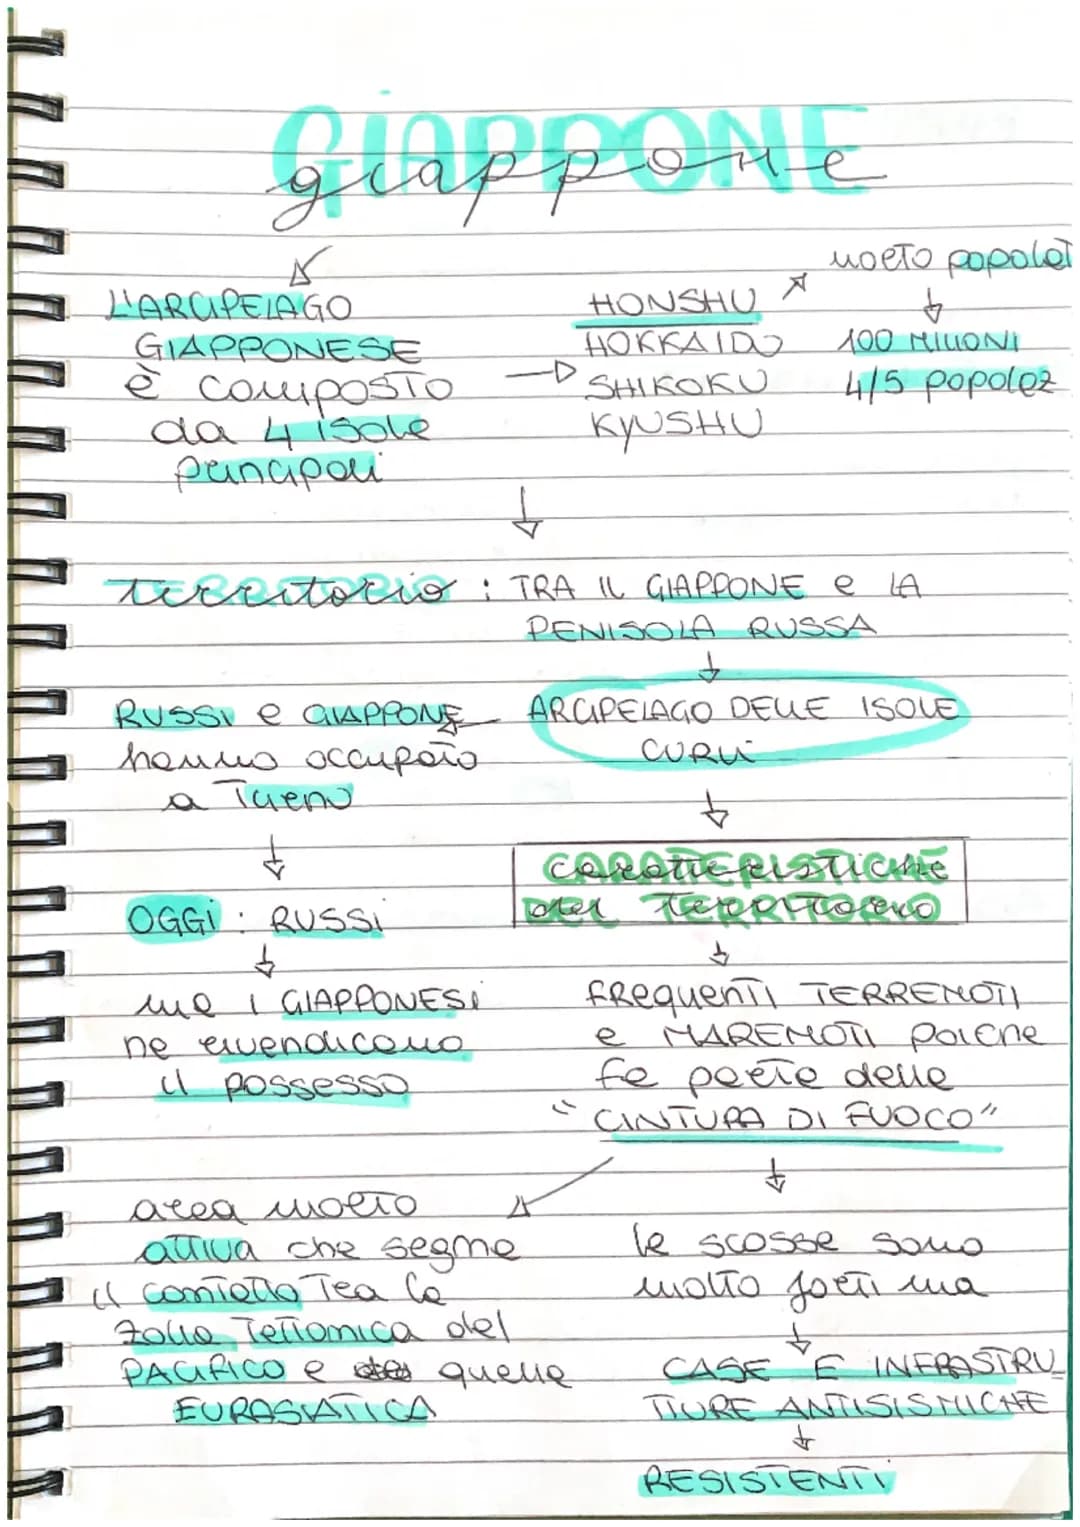 GIAPPONE
giappone
L'ARCIPELAGO
GIAPPONESE
è composto
da 4 isole
principali
HONSHU
HOKKAIDO
SHIKOKU
KYUSHU
molto popolat
100 MILIONI
4/5 popolaz
territorio : TRA IL GIAPPONE e LA
PENISOLA RUSSA
ARCIPELAGO DELLE ISOLE
CURILI
RUSSI e GIAPPONE
hanno occupato
a Turno
OGGI : RUSSI
ma i GIAPPONESI
ne rivendicano
il possesso
caratteristiche
del territorio
FREQUENTI TERREMOTI
e MAREMOTI poiché
fa parte della
"CINTURA DI FUOCO"
area molto
attiva che segna
il contatto Tra la
zolla Tettonica del
PACIFICO e quella
EURASIATICA
le scosse sono
molto forti ma
CASE E INFRASTRU_
TTURE ANTISISMICHE
RESISTENTI